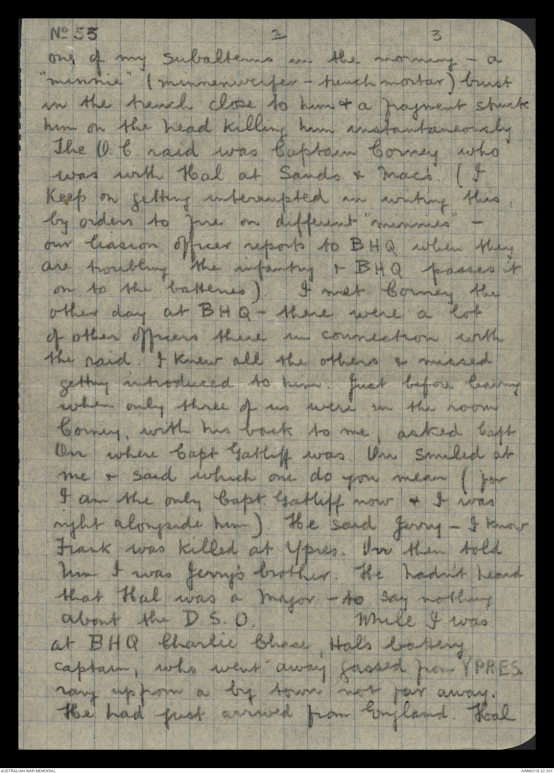 No 55 2 3
one of my subalterns in the morning - a
"minnie" (minnenwerfer - trench mortar) burst
in the trench close to him & a fragment struck
him on the head killing him instantaneously
The O.C. raid was Captain Corney who
was with Hal at Sands & Macs. (I
keep on getting interrupted in writing this,
by orders to fire on different "minnies" -
our liasion officer reports to BHQ when they
are troubling the infantry & BHQ passes it
on to the batteries). I met Corney the
other day at BHQ - there were a lot
of other officers there in connection with
the raid. I knew all the others & missed
getting introduced to him. Just before leaving
when only three of us were in the room
Corney, with his back to me, asked Capt
where Capt Gatliff was. smiled at
me & said which one do you mean (for
I am the only Capt Gatliff now & I was
right alongside him). He said Jerry - I know
Frank was killed at Ypres. then told
him I was Jerry's brother. He hadn't heard
that Hal was a Major - to say nothing
about the D.S.O. While I was
at BHQ Charlie Chase, Hal's battery
captain, who went away gassed from YPRES.
rang up from a big town not far away.
He had just arrived from England. Hal
AUSTRALIAN WAR MEMORIAL